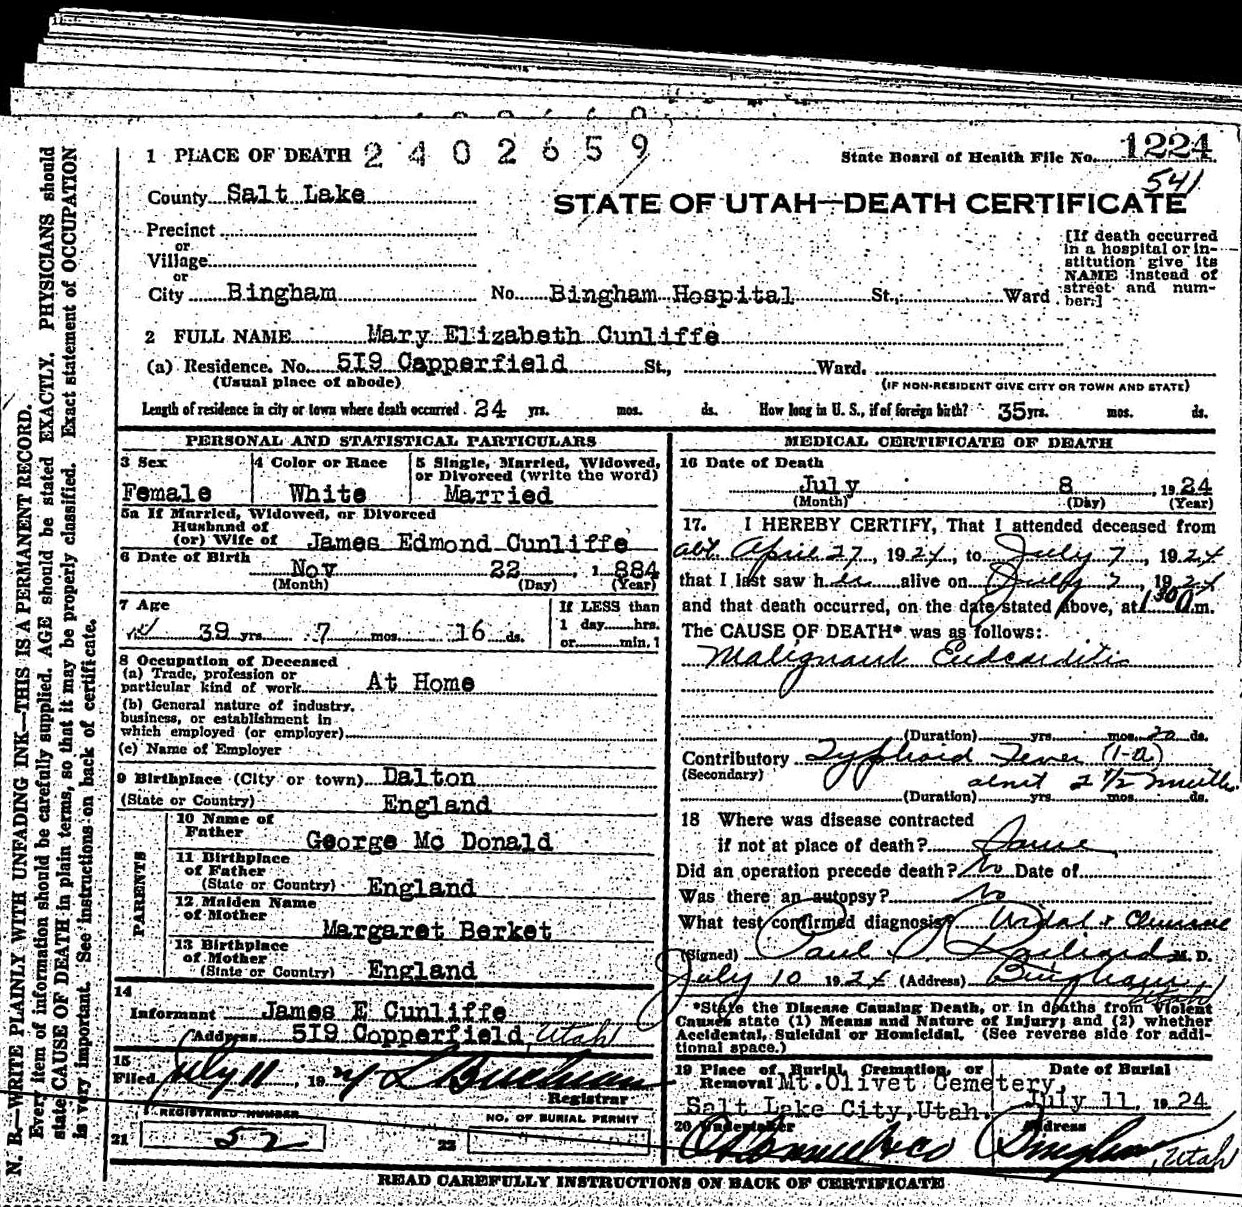 N. B.—WRITE PLAINLY WITH UNFADING INK—THIS IS A PERMANENT RECORD.
Every item of information should be carefully supplied. AGE should be stated EXACTLY. PHYSICIANS should
state CAUSE OF DEATH in plain terms, so that it may be properly classified. Exact statement of OCCUPATION
is very important. See instructions on back of certificate.
1 PLACE OF DEATH 2402659
State Board of Health File No. 1224
541
County Salt Lake
STATE OF UTAH—DEATH CERTIFICATE
Precinct
or
Village
or
City Bingham No. Bingham Hospital St., Ward
[If death occurred
in a hospital or in-
stitution give its
NAME instead of
street and num-
ber.]
2 FULL NAME Mary Elizabeth Cunliffe
(a) Residence. No. 5I9 Capperfield St., Ward.
(Usual place of abode) (IF NON-RESIDENT GIVE CITY OR TOWN AND STATE)
Length of residence in city or town where death occurred 24 yrs. mos. ds. How long in U. S., if of foreign birth? 35 yrs. mos. ds.
PERSONAL AND STATISTICAL PARTICULARS
3 Sex 4 Color or Race 5 Single, Married, Widowed,
or Divorced (write the word)
Female White Married
5a If Married, Widowed, or Divorced
Husband of
(or) Wife of James Edmond Cunliffe
6 Date of Birth
Nov 22, 1884
(Month) (Day) (Year)
7 Age If LESS than
39 yrs. 7 mos. 16 ds. 1 day hrs.
or min.
8 Occupation of Deceased
(a) Trade, profession or
particular kind of work At Home
(b) General nature of industry,
business, or establishment in
which employed (or employer)
(c) Name of Employer
9 Birthplace (City or town) Dalton
(State or Country) England
PARENTS
10 Name of
Father George Mc Donald
11 Birthplace
of Father
(State or Country) England
12 Maiden Name
of Mother
Margaret Berket
13 Birthplace
of Mother
(State or Country) England
14
Informant James E Cunliffe
Address 5I9 Copperfield, Utah
15
Filed July 11, 1924 L Buchman
Registrar
REGISTERED NUMBER NO. OF BURIAL PERMIT
21 52 22
MEDICAL CERTIFICATE OF DEATH
16 Date of Death
July 8, 1924
(Month) (Day) (Year)
17. I HEREBY CERTIFY, That I attended deceased from
abt April 27, 1924, to July 7, 1924
that I last saw her alive on July 7, 1924
and that death occurred, on the date stated above, at 1 30 a m.
The CAUSE OF DEATH* was as follows:
Malignant Endcarditis
(Duration) yrs. mos. 20 ds.
Contributory Typhoid Fever (1-a)
(Secondary) about 2 1/2 months
(Duration) yrs. mos. ds.
18 Where was disease contracted
if not at place of death? Same
Did an operation precede death? No Date of
Was there an autopsy? No
What test confirmed diagnosis? Widal &
(Signed) Paul S. Richards M. D.
July 10 1924 (Address) Bingham
Utah
*State the Disease Causing Death, or in deaths from Violent
Causes state (1) Means and Nature of Injury; and (2) whether
Accidental, Suicidal or Homicidal. (See reverse side for addi-
tional space.)
19 Place of Burial, Cremation, or Date of Burial
Removal Mt. Olivet Cemetery,
Salt Lake City, Utah. July 11, 1924
20 Undertaker Address
Bingham, Utah
READ CAREFULLY INSTRUCTIONS ON BACK OF CERTIFICATE